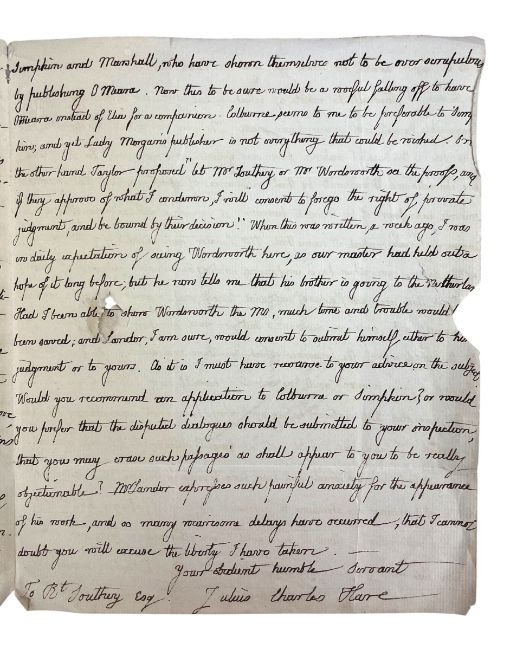 Simpkin and Marshall, who have shown themselves not to be over scrupulous
by publishing O'Meara. Now this to be sure would be a woeful falling off to have
O'Meara instead of Elia for a companion. Colburne seems to me to be preferable to Simp
kin; and yet Lady Morgan's publisher is not everything that could be wished. On
the other hand Taylor proposed "let Mr Southey or Mr Wordsworth see the proofs, and
if they approve of what I condemn, I will consent to forego the right of private
judgment, and be bound by their decision." When this was written, a week ago, I was
in daily expectation of seeing Wordsworth here, as our master had held out a
hope of it long before; but he now tells me that his brother is going to the Netherlan
Had I been able to show Wordsworth the MS, much time and trouble would
been saved; and Landor, I am sure, would consent to submit himself either to his
judgment or to yours. As it is I must have recourse to your advice on the subject.
Would you recommend an application to Colburne or Simpkin? or would
you prefer that the disputed dialogues should be submitted to your inspection,
that you may erase such passages as shall appear to you to be really
objectionable? Mr Landor expresses such painful anxiety for the appearance
of his work, and so many wearisome delays have occurred, that I cannot
doubt you will excuse the liberty I have taken.
Your obedient humble Servant
To Rt Southey Esq. Julius Charles Hare